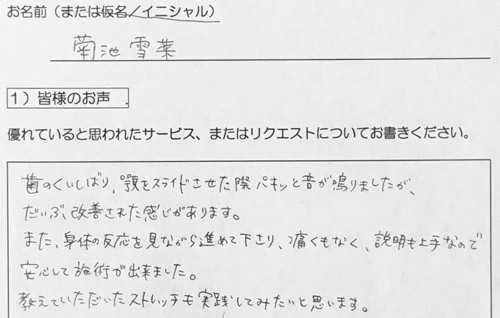 お名前（または仮名／イニシャル）
菊池 雪菜
１）皆様のお声
優れていると思われたサービス、またはリクエストについてお書きください。
歯のくいしばり、顎をスライドさせた際パキッと音が鳴りましたが、
だいぶ改善された感じがあります。
また、身体の反応を見ながら進めて下さり、痛くもなく、説明も上手なので
安心して施術が出来ました。
教えていただいたストレッチも実践してみたいと思います。